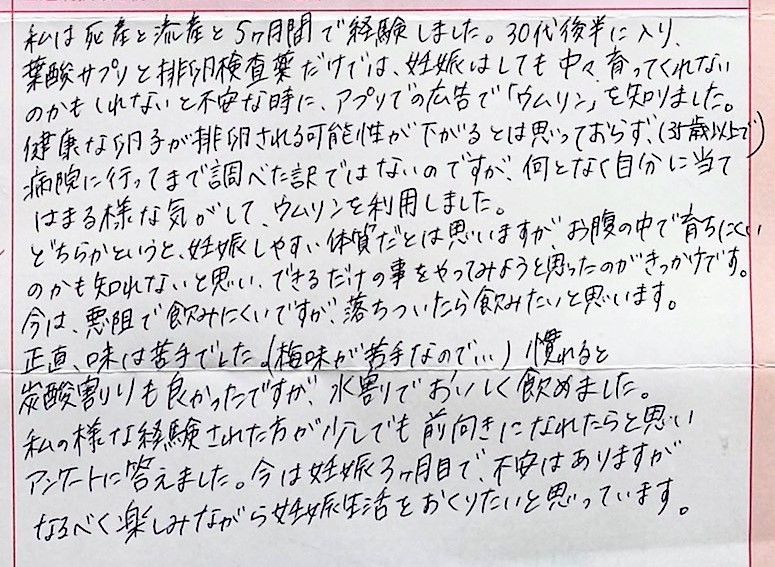 私は死産と流産と5ヶ月間で経験しました。30代後半に入り、
葉酸サプリと排卵検査薬だけでは、妊娠はしても中々育ってくれない
のかもしれないと不安な時に、アプリでの広告で「ウムリン」を知りました。
健康な卵子が排卵される可能性が下がるとは思っておらず、(35歳以上で)
病院に行ってまで調べた訳ではないのですが、何となく自分に当て
はまる様な気がして、ウムリンを利用しました。
どちらかというと、妊娠しやすい体質だとは思いますが、お腹の中で育ちにくい
のかも知れないと思い、できるだけの事をやってみようと思ったのがきっかけです。
今は、悪阻で飲みにくいですが、落ちついたら飲みたいと思います。
正直、味は苦手でした。(梅味が苦手なので…) 慣れると
炭酸割りも良かったですが、水割りでおいしく飲めました。
私の様な経験された方が少しでも前向きになれたらと思い
アンケートに答えました。今は妊娠3ヶ月目で、不安はありますが
なるべく楽しみながら妊娠生活をおくりたいと思っています。